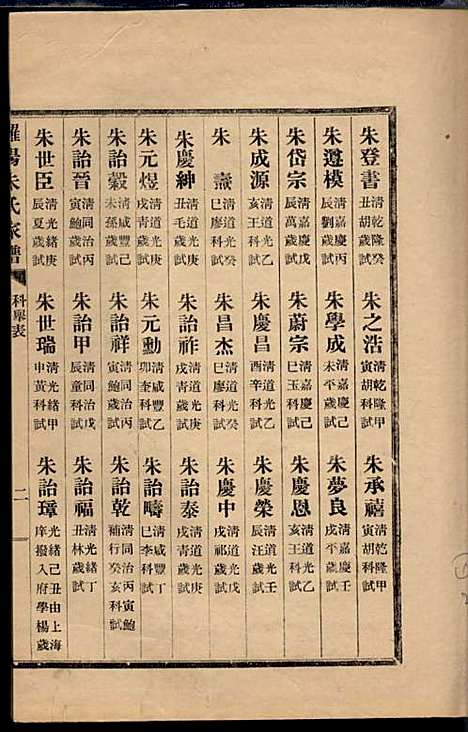 朱登書 清乾隆癸丑胡歲試 朱之浩 清乾隆甲寅胡科試 朱承禧 清乾隆甲寅胡科試
朱遵模 清嘉慶丙辰劉歲試 朱學成 清嘉慶己未平歲試 朱夢良 清嘉慶壬戌平歲試
朱岱宗 清嘉慶戊辰萬歲試 朱蔚宗 清嘉慶己巳玉科試 朱慶恩 清道光乙亥王科試
朱成源 清道光乙亥王科試 朱慶昌 清道光乙酉辛科試 朱慶榮 清道光壬辰汪歲試
朱 清道光癸巳廖科試 朱昌杰 清道光癸巳廖科試 朱慶中 清道光戊戌祁歲試
朱慶紳 清道光丑毛歲試 朱詒祚 清道光庚戌青歲試 朱詒泰 清道光庚戌青歲試
朱元煜 清道光庚戌青歲試 朱元勳 清咸豐乙卯奎科試 朱詒疇 清咸豐丁巳李科試
朱詒穀 清咸豐己未孫歲試 朱詒祥 清同治丙寅鮑歲試 朱詒乾 清同治丙寅鮑補行癸亥科試
朱詒晉 清同治丙寅鮑歲試 朱詒甲 清同治戊辰童歲試 朱詒福 清光緒丁丑林歲試
朱世臣 清光緒庚辰夏歲試 朱世瑞 清光緒甲申黃科試 朱詒璋 光緒己丑由上海庠撥入府學楊歲
羅陽朱氏家譜 科舉表 二